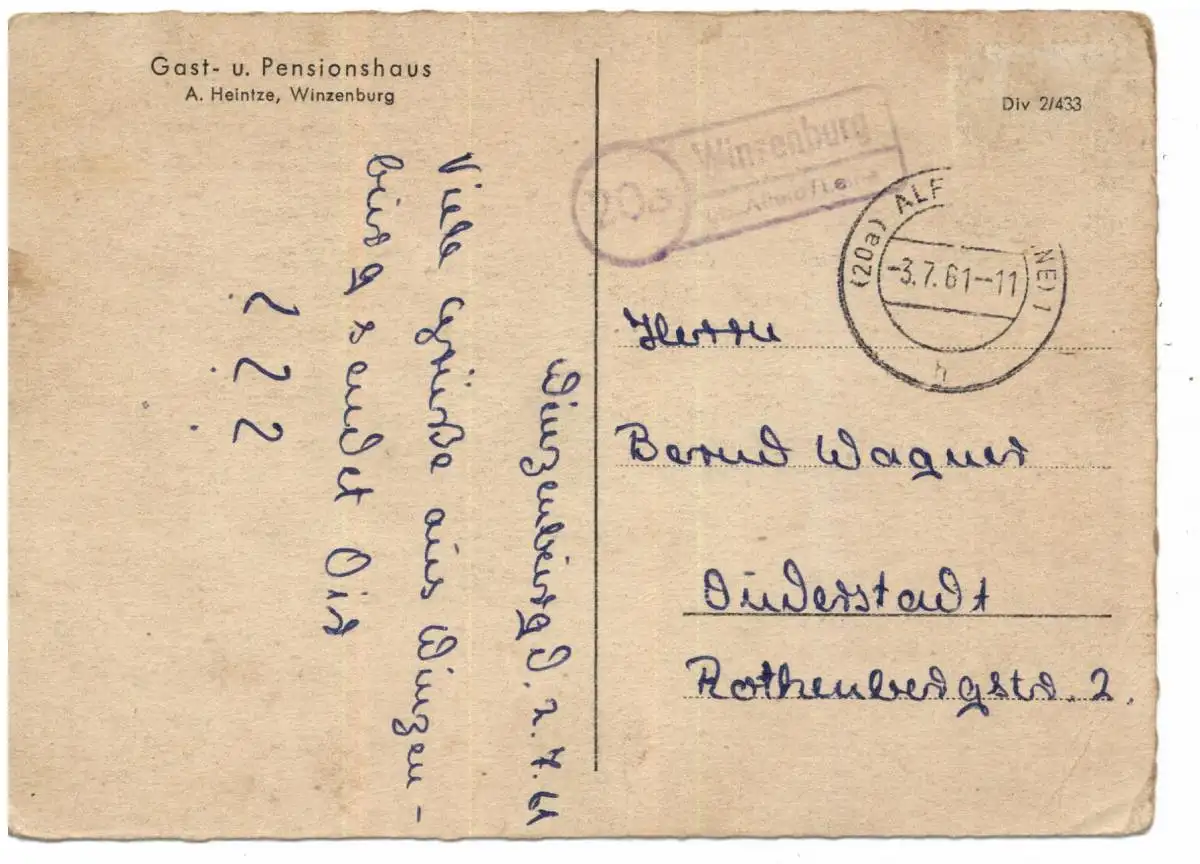 Gast- u. Pensionshaus
A. Heintze, Winzenburg
Div 2/433
20a
Winzenburg
(20a) ALF NE) 1
-3.7.61--11
h
Winzenburg d. 2.7.61
Viele Grüße aus Winzen-
burg sendet Dir
? ? ?
Herrn
Bernd Wagner
Duderstadt
Rothenbergstr. 2.